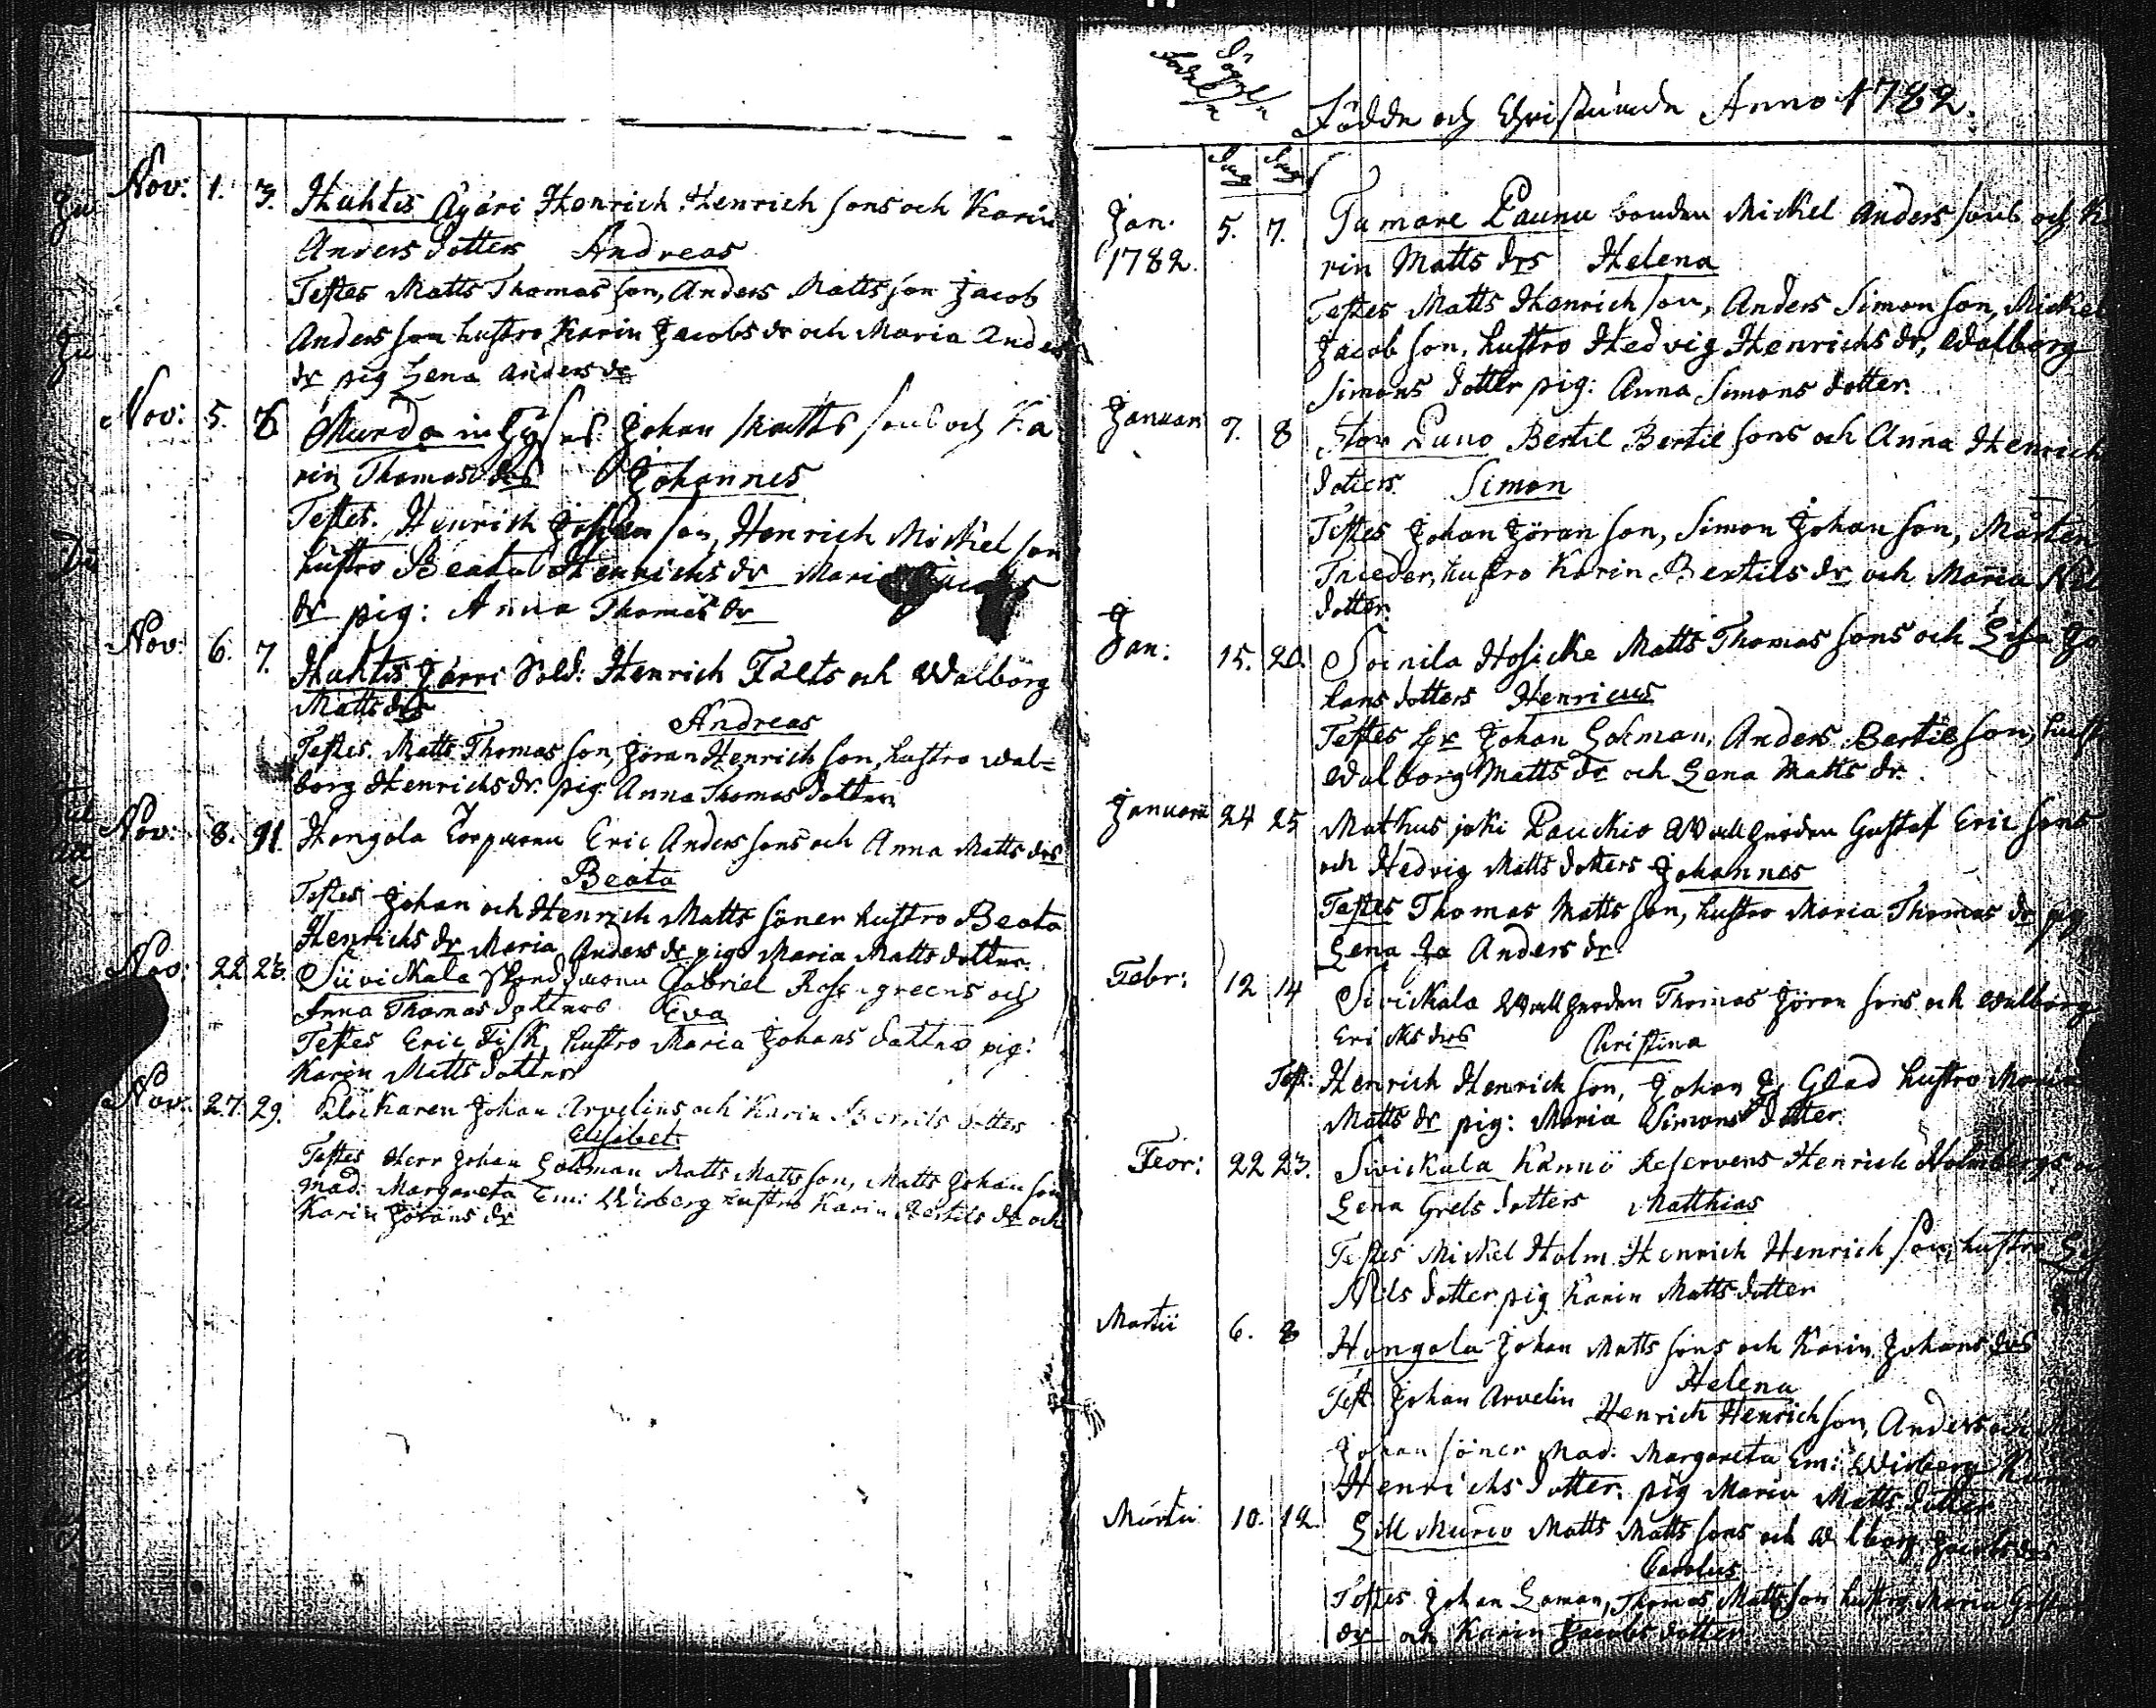 Nov: 1. 3. Huhtis Äyäri Henrich Henrich sons och Karin
Anders dotters Andreas
Testes Matts Thomas son, Anders Matts son Jacob
Anders son hustro Karin Jacobs dr och Maria Anders
dr pig Lena Anders dr
Nov: 5. 8 Johan Matts sons och Ka
rin Thomas drs Johannes
Testes. Henrich son, Henrich Mickel son
hustro Beata Henrichs dr Maria
dr pig: Anna Thomas dr
Nov: 6. 7. Huhtis Järri Sold: Henrich Fält och Walborg
Matts drs
Andreas
Testes. Matts Thomas son, Jöran Henrich son, hustro Wal=
borg Henrichs dr. pig Anna Thomas dotter
Nov: 8. 11. Hongola Eric Anders sons och Anna Matts drs
Beata
Testes Johan och Henrich Matts söner hustro Beata
Henrichs dr Maria Anders dr pig Maria Matts dotter.
Nov: 22 23. Siivickala Gabriel Rosengreens och
Anna Thomas dotters Eva
Testes Eric Fisk, hustro Maria Johans dotter pig:
Karin Matts dotter
Nov. 27. 29. Klockaren Johan Arvelins och Karin Bertils dotter
Elisabet
Testes Herr Johan Matts Matts son, Matts Johan son
Mad: Margareta Em: Wirberg hustro Karin Bertils dr och
Karin Jörans dr
Födde och Christnade Anno 1782.
Dag Dag
Jan. 1782. 5. 7. Tamare Paunu bonden Mickel Anders sons och K
rin Matts drs Helena
Testes Matts Henrich son, Anders Simon son, Mickel
Jacob son, hustro Hedvig Henrichs dr, Walborg
Simons dotter pig: Anna Simons dotter.
Januari 7. 8 Bertil Bertil sons och Anna Henrich
dotters. Simon
Testes Johan Jöran son, Simon Johan son, Mårten
hustro Karin Bertils dr och Maria
dotter.
Jan: 15. 20. Soinila Hosicke Matts Thomas sons och Lisa Jo
hans dotters Henricus
Testes Hr Johan Anders Bertil son, hust
Walborg Matts dr och Lena Matts dr.
Januari 24 25 Mathus joki Gustaf Eric sons
och Hedvig Matts dotters Johannes
Testes Thomas Matts son, hustro Maria Thomas dr pig
Lena Anders dr
Febr: 12 14 Sivickala Thomas Jöran sons och Walborg
Ericks drs Christina
Test: Henrich Henrich son, Johan Glad hustro Maria
Matts dr pig: Maria Simons dotter.
Febr: 22 23. Sivickala Kännö Reservens Henrich Holmbergs
Lena Grels dotters Matthias
Testes Mickel Holm Henrich Henrich son, hustro
Nils dotter pig Karin Matts dotter
Martii 6. 8 Hongola Johan Matts sons och Karin Johans drs
Helena
Test. Johan Arvelin Henrich Henrich son, Anders och
Johan söner Mad. Margareta Em: Wirberg
Henrichs dotter. pig Maria Matts dotter
Martii 10. 12. Matts Matts sons och Walborg Jacobs drs
Carolus
Testes Johan Thomas Matts son hustro Maria
dr och Karin Jacobs dotter